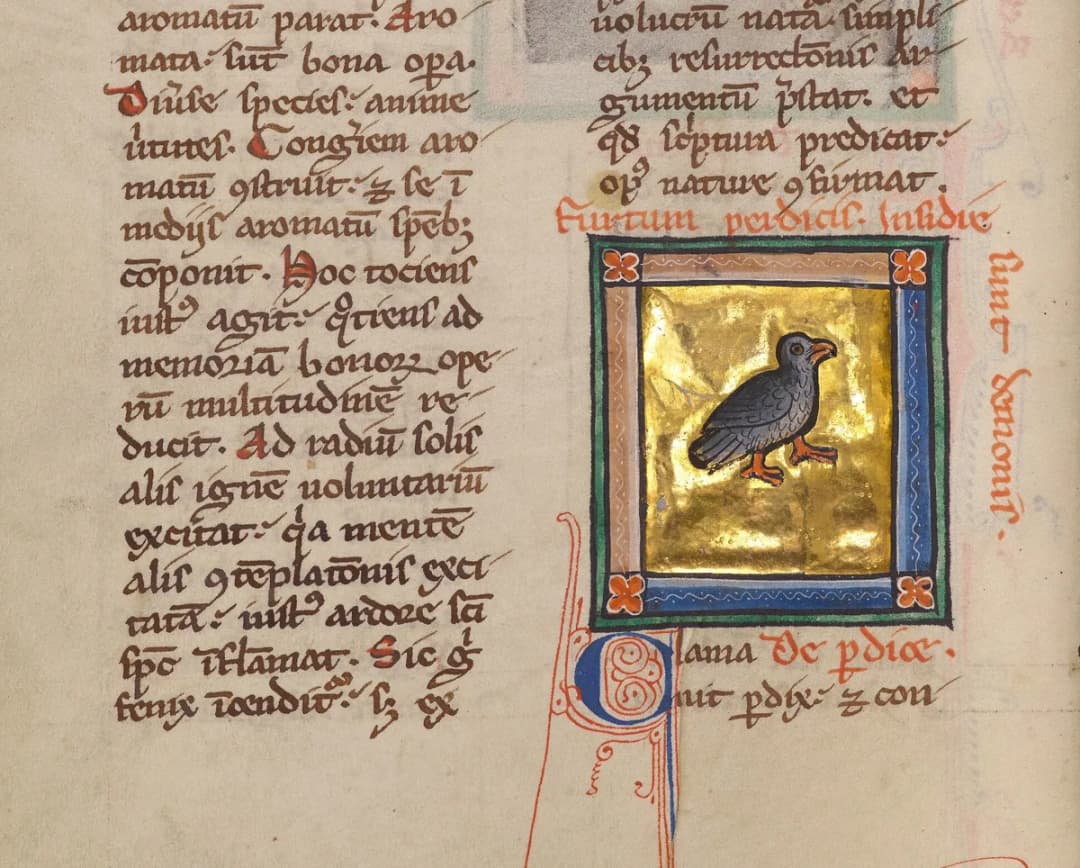 aromatū parat. Aro
mata. sūt bona oꝑa.
Diu̾se species. anime
u̾tutes. Congi̾em aro
matū ꝯstruit. ⁊ se ī
mediis aromatū spēbꝫ
cōponit. Hoc tociens
iustꝰ agit. qͦciens ad
memoriā bonoꝝ ope
rū multitudinē re
ducit. Ad radiū solis
alis ignē uoluntariū
excitat. qͣa mentē
alis ꝯtēplatōnis exci
tatā. iustꝰ ardore sc̄i
sp̄c īflāmat. Sic gͥ
fenix īcenditͬ. sꝫ ex
uolucrū natā simpli
cibꝫ resurrectōnis ar
gumentū p̄stat. et
qd̄ scͥptura predicat.
opꝰ nature ꝯfirmat.
Furtum perdicis. Insidie
sunt demonis.
Clama De ꝑdice.
uit ꝑdix. ⁊ con